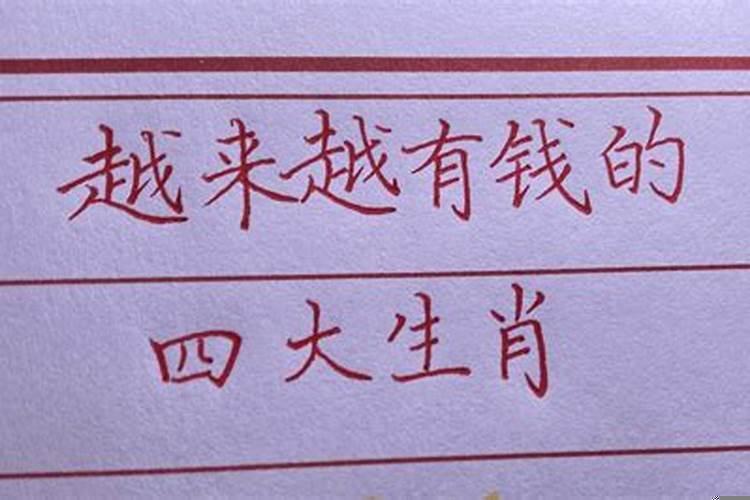 越来越有钱的
四大生肖